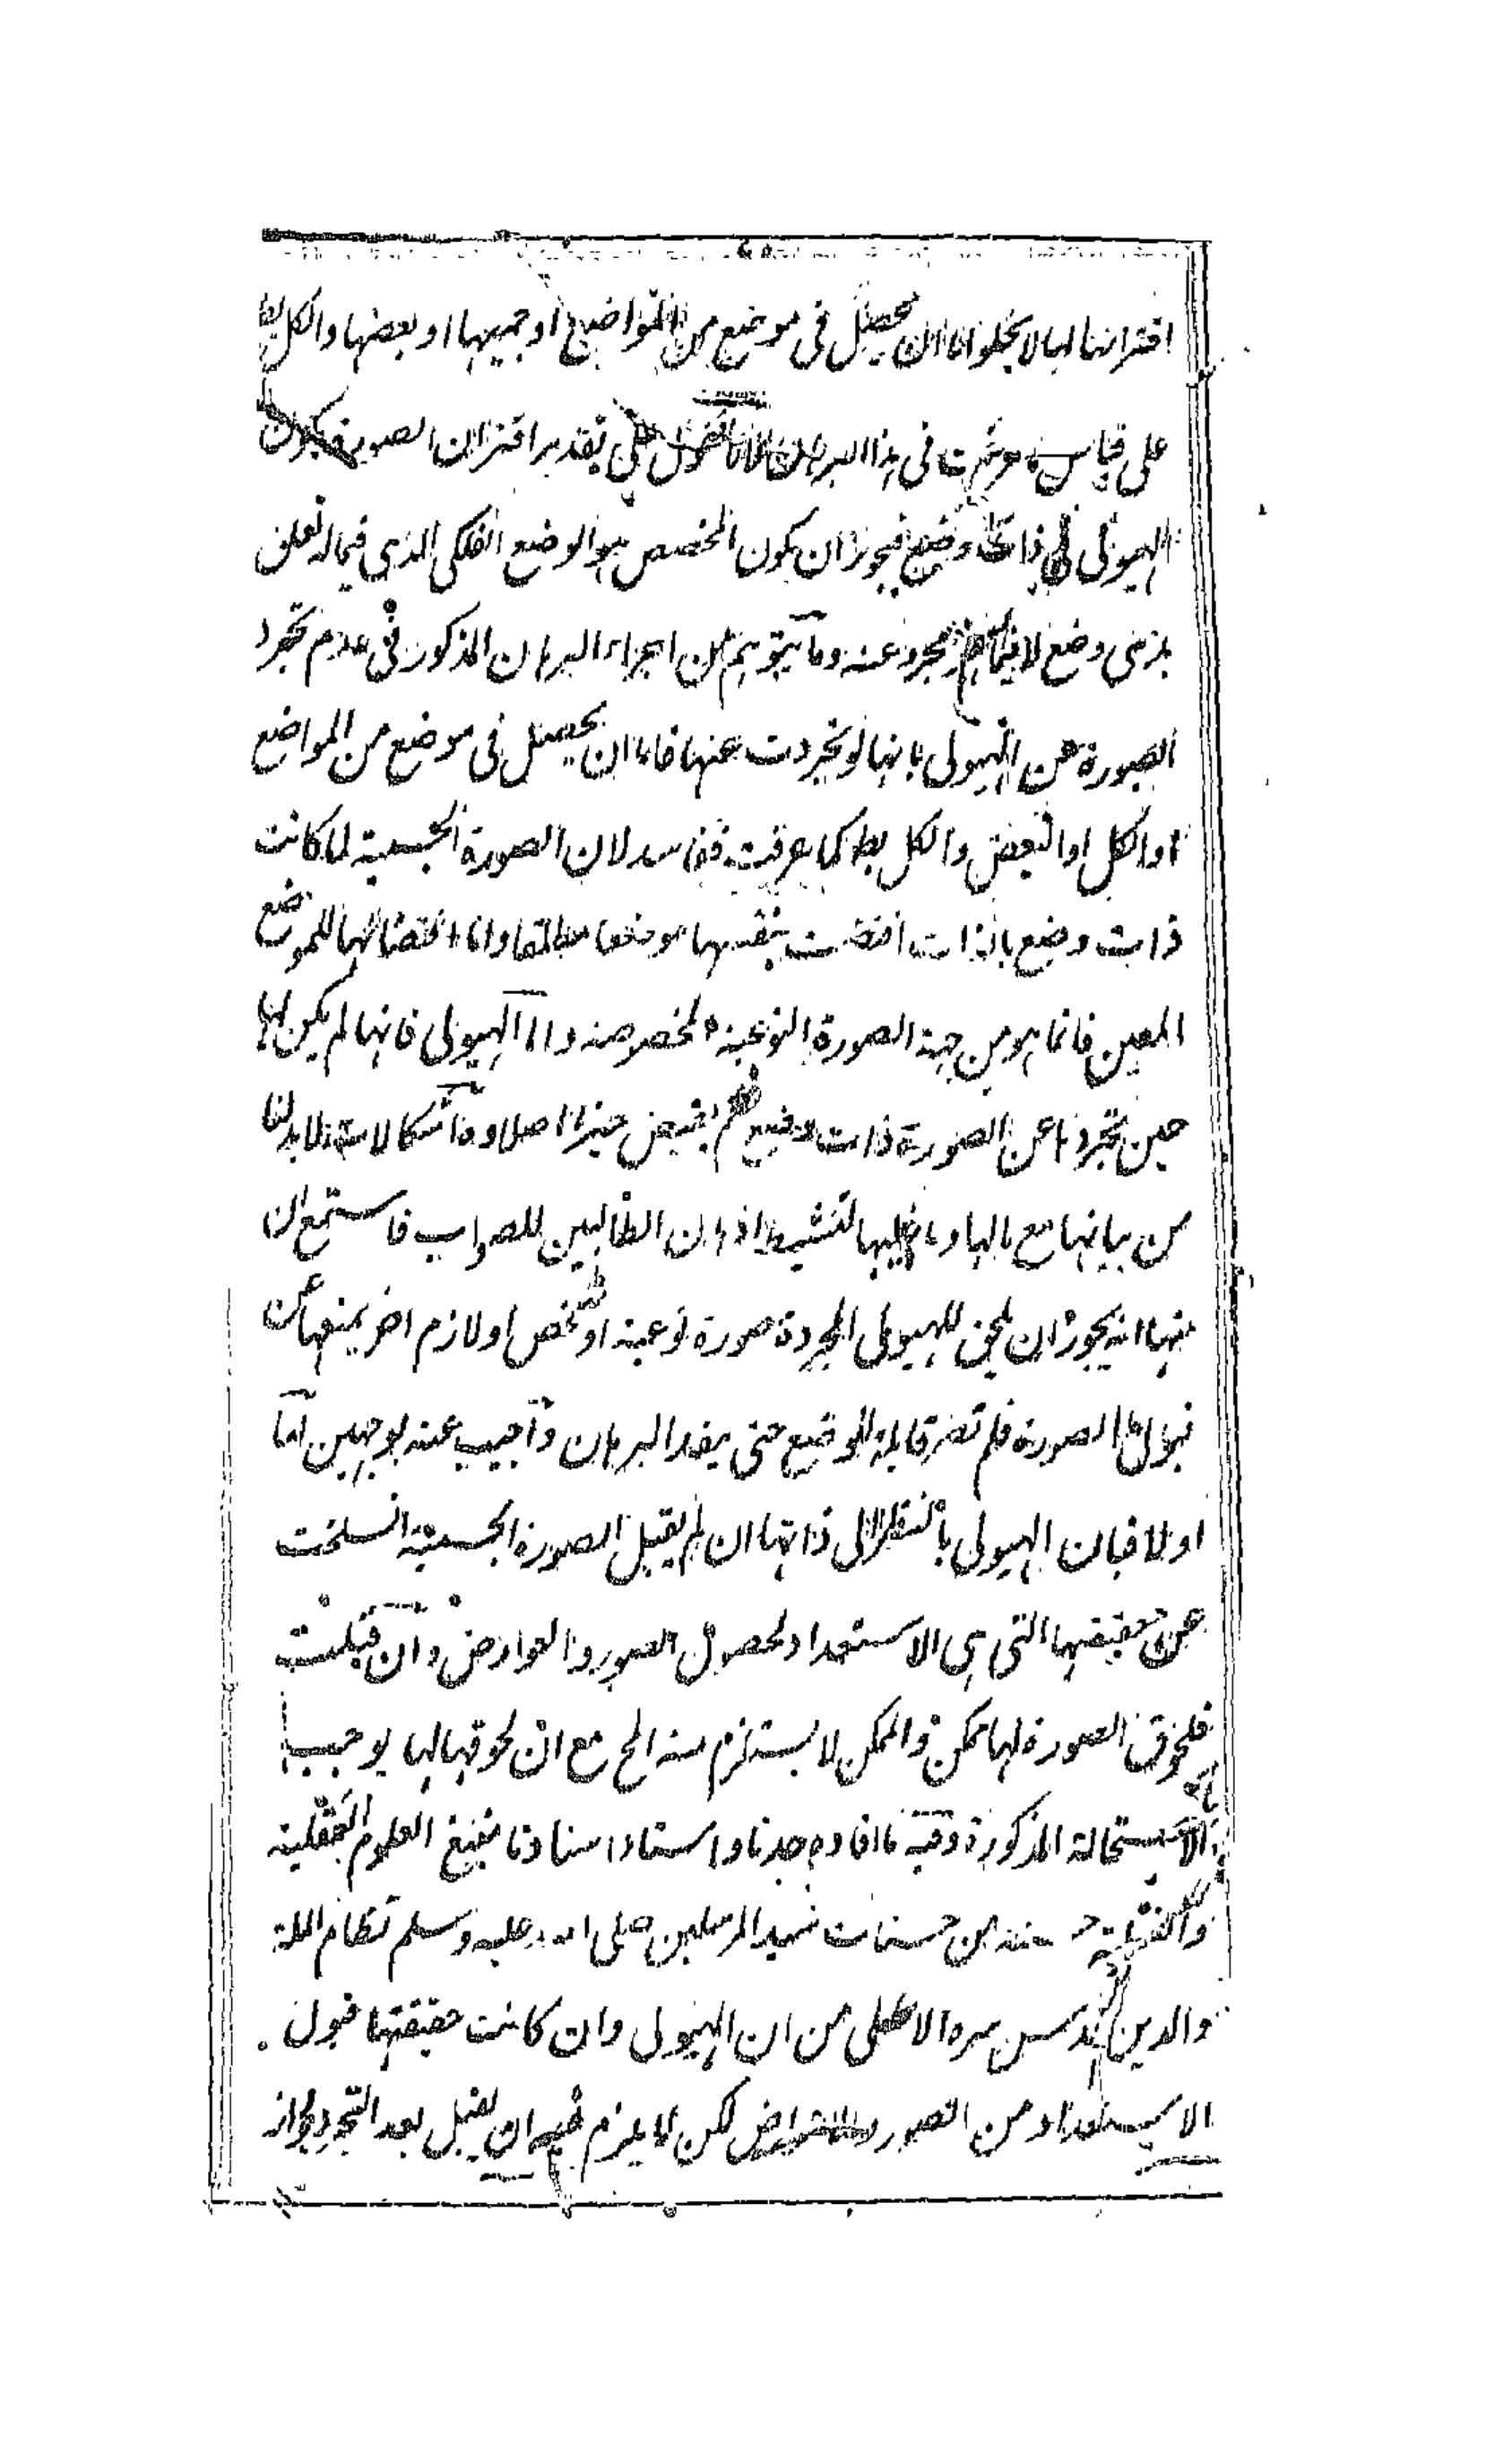 اقترانها لها لا يخلو اما ان يحصل فى موضع من المواضع او جميعها او بعضها والكل بط
على قياس ما عرفت فى هذا البرهان لانا نقول على تقدير اقتران الصورة فيكون
الهيولى فى ذاتها وضع فيجوز ان يكون المخصص هو الوضع الفلكى الذي فيما له تعلق
بذى وضع لا فيما هو مجرد عنه وما يتوهم من اجراء البرهان المذكور فى عدم تجرد
الصورة عن الهيولى بانها لو تجردت عنها فاما ان يحصل فى موضع من المواضع
او الكل او البعض والكل بط كما عرفت ففاسد لان الصورة الجسمية لما كانت
ذات وضع بالذات اقتضت بنفسها موضعا مطلقا واما اقتضائها للموضع
المعين فانما هو من جهة الصورة النوعية المخصوصة واما الهيولى فانها لم يكن لها
حين تجردها عن الصورة ذات وضع فلم يقتض حيزا اصلا وها اشكالات لابد لنا
من بيانها مع مالها وما عليها لتنشيط اذهان الطالبين للصواب فاستمع ان
منها انه يجوز ان يلحق للهيولى المجردة صورة نوعية او تشخص او لازم اخر يمنعها عن
قبول الصورة فلم تصر قابلة للوضع حتى يفد البرهان واجيب عنه بوجهين اما
اولا فبان الهيولى بالنظر الى ذاتها ان لم يقبل الصورة الجسمية انسلخت
عن حقيقتها التى هى الاستعداد لحصول الصور والعوارض وان قبلت
فلحوق الصورة لها ممكن والممكن لا يستلزم منه المح مع ان لحوقها لها يوجب
الاستحالة المذكورة وفيه ما افاده جدنا واستاد استادنا منبع العلوم العقلية
والنقلية حسنة من حسنات سيد المرسلين صلى الله عليه وسلم نظام الملة
والدين قدس سره الاعلى من ان الهيولى وان كانت حقيقتها قبول
الاستعداد من الصور والاعراض لكن لا يلزم فيه ان يقبل بعد التجرد لجواز